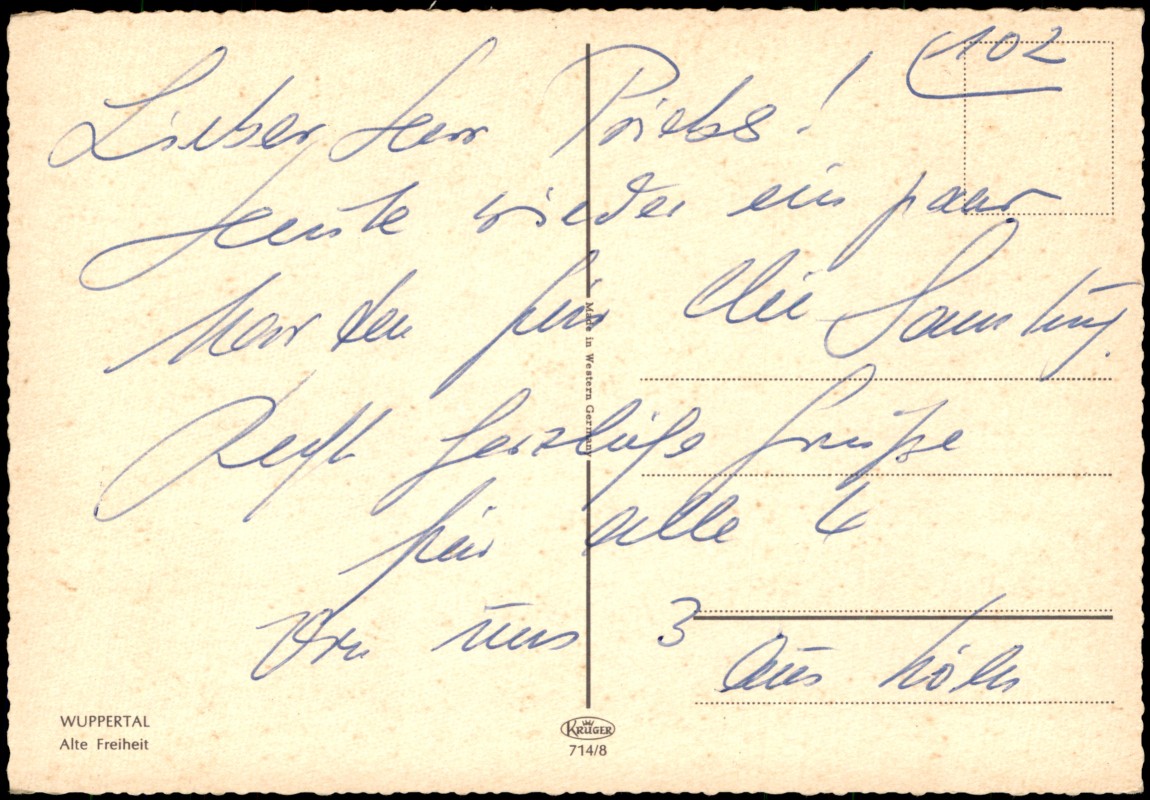 102
Lieber Herr Priebs!
Heute wieder ein paar
Karten für die Sammlung.
Recht herzliche Grüße
für alle 4
Von uns 3
Aus Köln
Made in Western Germany
WUPPERTAL
Alte Freiheit
KRÜGER
714/8